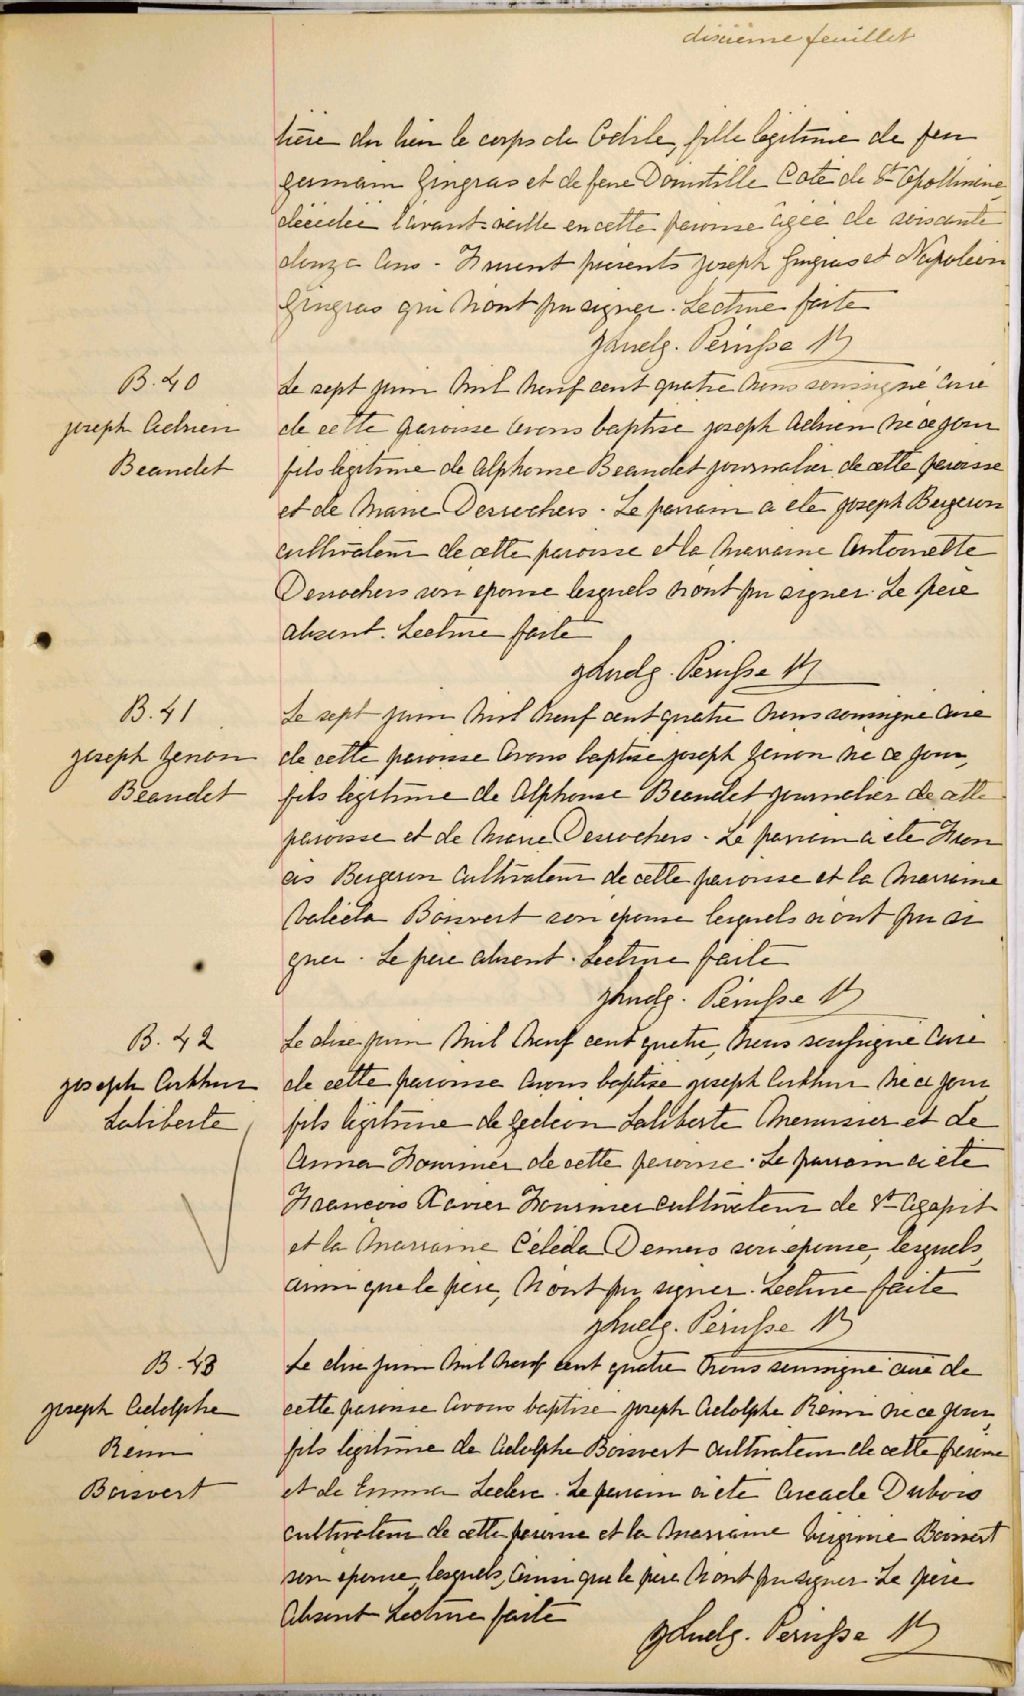 dixième feuillet
tière du lieu le corps de Odile, fille légitime de feu
germain Gingras et de feue Domitille Coté de St Apollinaire
décédée l'avant-veille en cette paroisse âgée de soixante
douze ans - Furent présents joseph Gingras et Napoléon
Gingras qui n'ont pu signer. Lecture faite
Pérusse Ptre
B. 40
joseph Adrien
Beaudet
Le sept juin mil neuf cent quatre nous soussigné curé
de cette paroisse avons baptisé joseph Adrien né ce jour
fils légitime de Alphonse Beaudet journalier de cette paroisse
et de Marie Desrochers. Le parrain a été joseph Bergeron
cultivateur de cette paroisse et la marraine Antoinette
Desrochers son épouse lesquels n'ont pu signer. Le père
absent. Lecture faite
Pérusse Ptre
B. 41
joseph Zenon
Beaudet
Le sept juin mil neuf cent quatre nous soussigné curé
de cette paroisse avons baptisé joseph Zenon né ce jour,
fils légitime de Alphonse Beaudet journalier de cette
paroisse et de Marie Desrochers. Le parrain a été Fran
cis Bergeron cultivateur de cette paroisse et la marraine
Valéda Boisvert son épouse lesquels n'ont pu si
gner. Le père absent. Lecture faite
Pérusse Ptre
B. 42
joseph Arthur
Laliberté
Le dix juin mil neuf cent quatre, nous soussigné curé
de cette paroisse avons baptisé joseph Arthur né ce jour
fils légitime de Gédéon Laliberté menuisier et de
Anna Fournier de cette paroisse. Le parrain a été
François Xavier Fournier cultivateur de St Agapit
et la marraine Céléda Demers son épouse, lesquels,
ainsi que le père, n'ont pu signer. Lecture faite
Pérusse Ptre
B. 43
joseph Adolphe
Rémi
Boisvert
Le dix juin mil neuf cent quatre nous soussigné curé de
cette paroisse avons baptisé joseph Adolphe Rémi né ce jour
fils légitime de Adolphe Boisvert cultivateur de cette paroisse
et de Emma Leclerc. Le parrain a été Arcade Dubois
cultivateur de cette paroisse et la marraine Virginie Boisvert
son épouse, lesquels, ainsi que le père n'ont pu signer Le père
absent Lecture faite
Pérusse Ptre